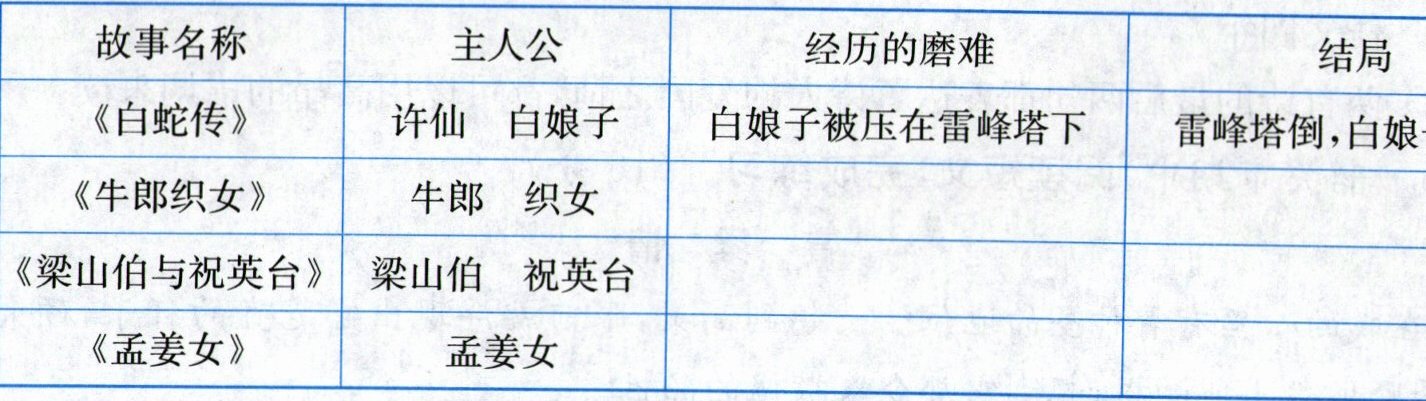 故事名称 主人公 经历的磨难 结局
《白蛇传》 许仙 白娘子 白娘子被压在雷峰塔下 雷峰塔倒,白娘
《牛郎织女》 牛郎 织女
《梁山伯与祝英台》 梁山伯 祝英台
《孟姜女》 孟姜女